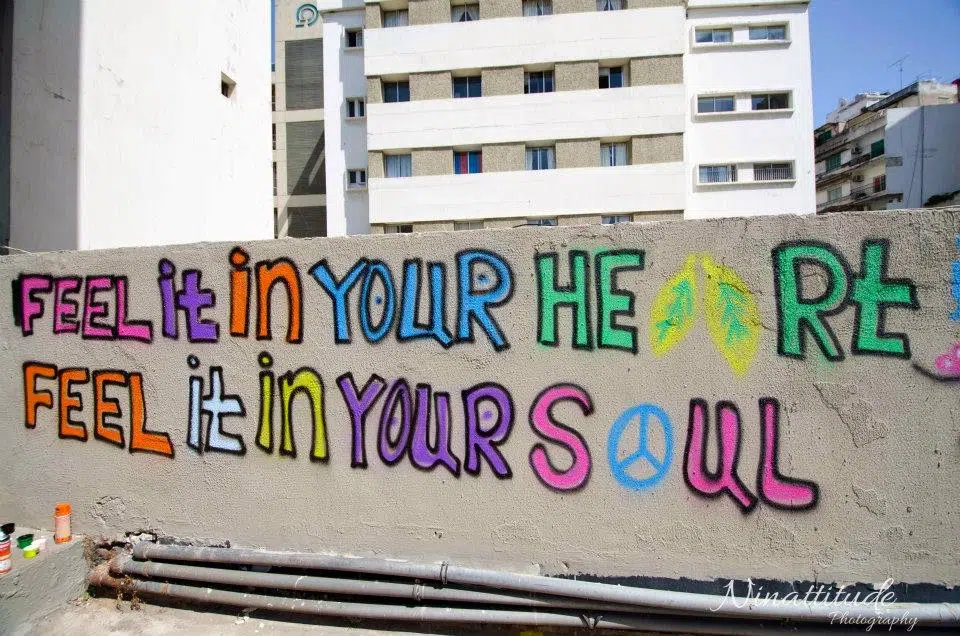 FEEL it in YOUR HEART
FEEL it in YOUR SOUL
Ninattitude
Photography